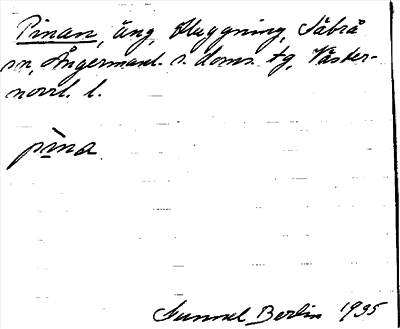 Pinan, äng, Muggning, Säbrå
sn, Ångermanl. s. doms. tg, Väster-
norrl. l.
pina
Gunnel Berlin 1935